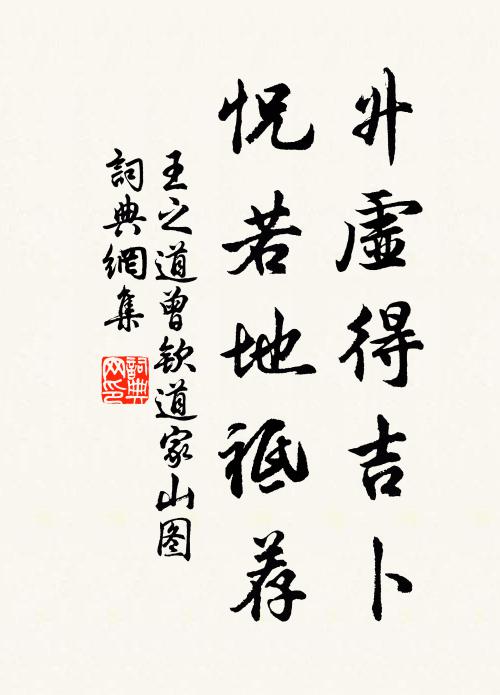 升虚得吉卜
怳若地祗荐
王之道曾欽道家山图
詞典網集
詞典网印